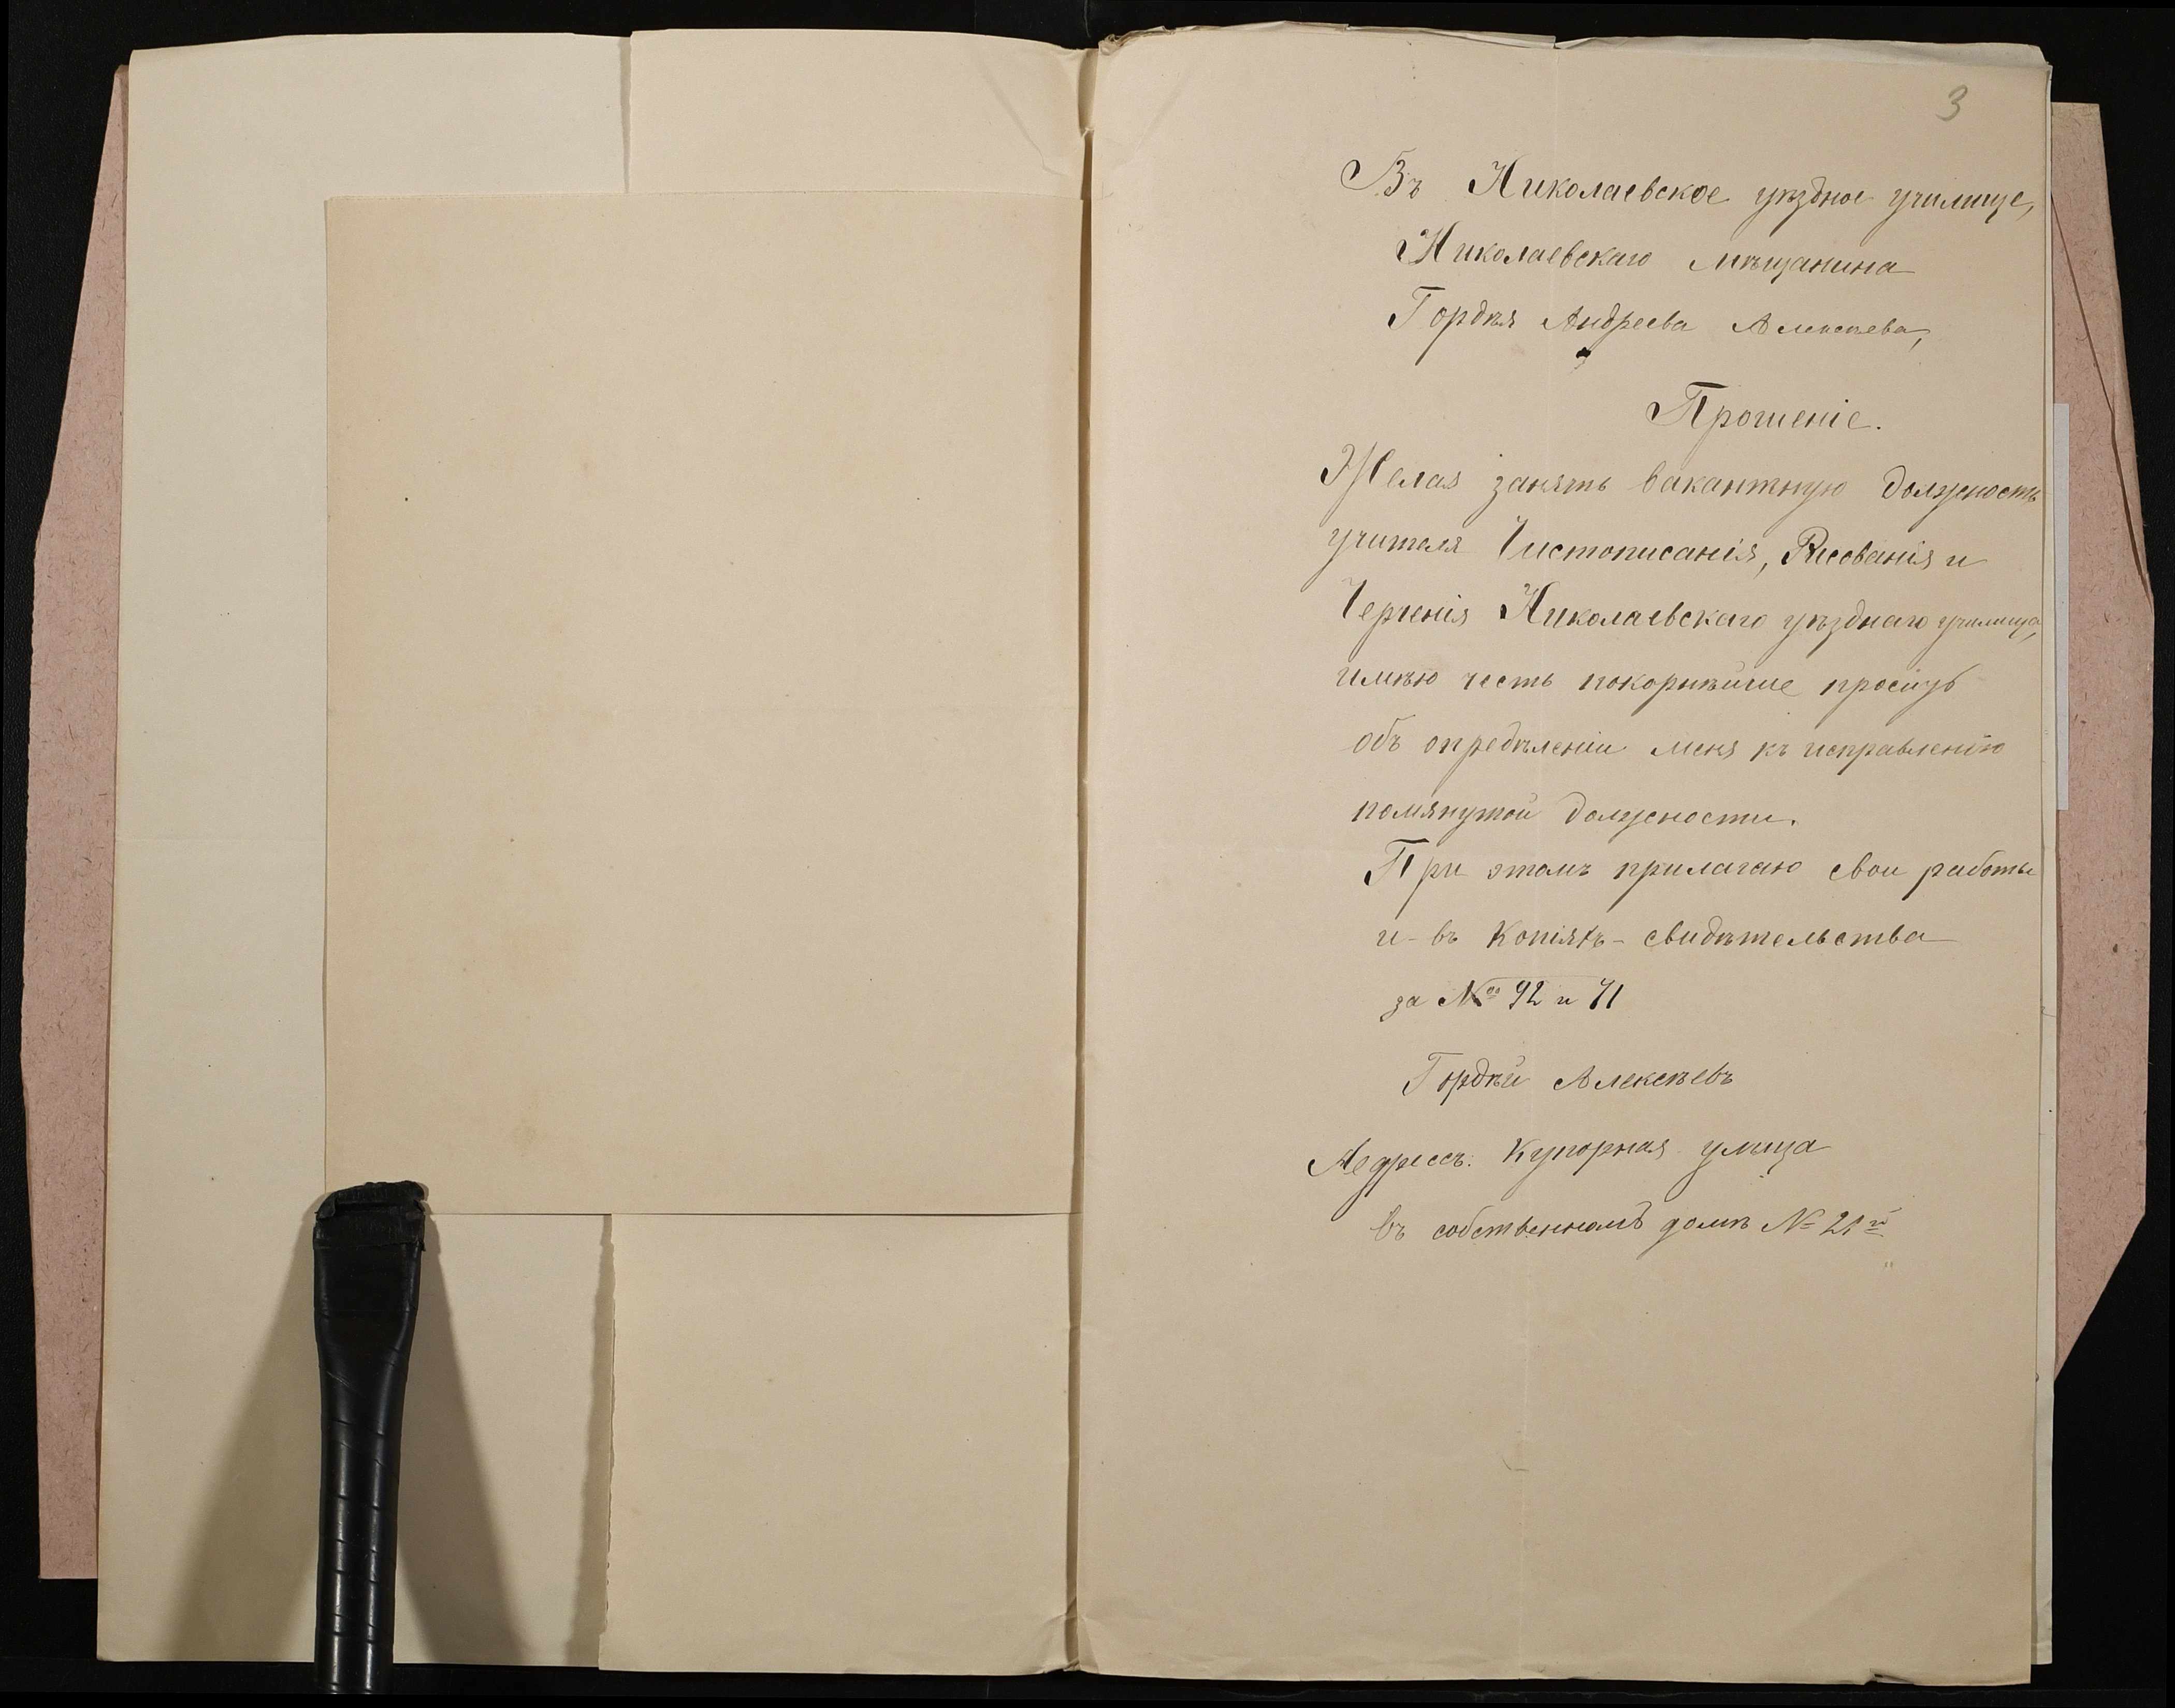 3
Въ Николаевское уѣздное училище,
Николаевскаго мѣщанина
Гордѣя Андреева Алексѣева,
Прошеніе.
Желая занять вакантную должность
учителя Чистописанія, Рисованія и
Черченія Николаевскаго уѣзднаго училища,
имѣю честь покорнѣйше просить
объ опредѣленіи меня къ исправленію
помянутой должности.
При этомъ прилагаю свои работы
и - въ копіяхъ - свидѣтельства
за №№ 92 и 71
Гордѣй Алексѣевъ
Адрессъ: Купорная улица
въ собственномъ домѣ № 21й